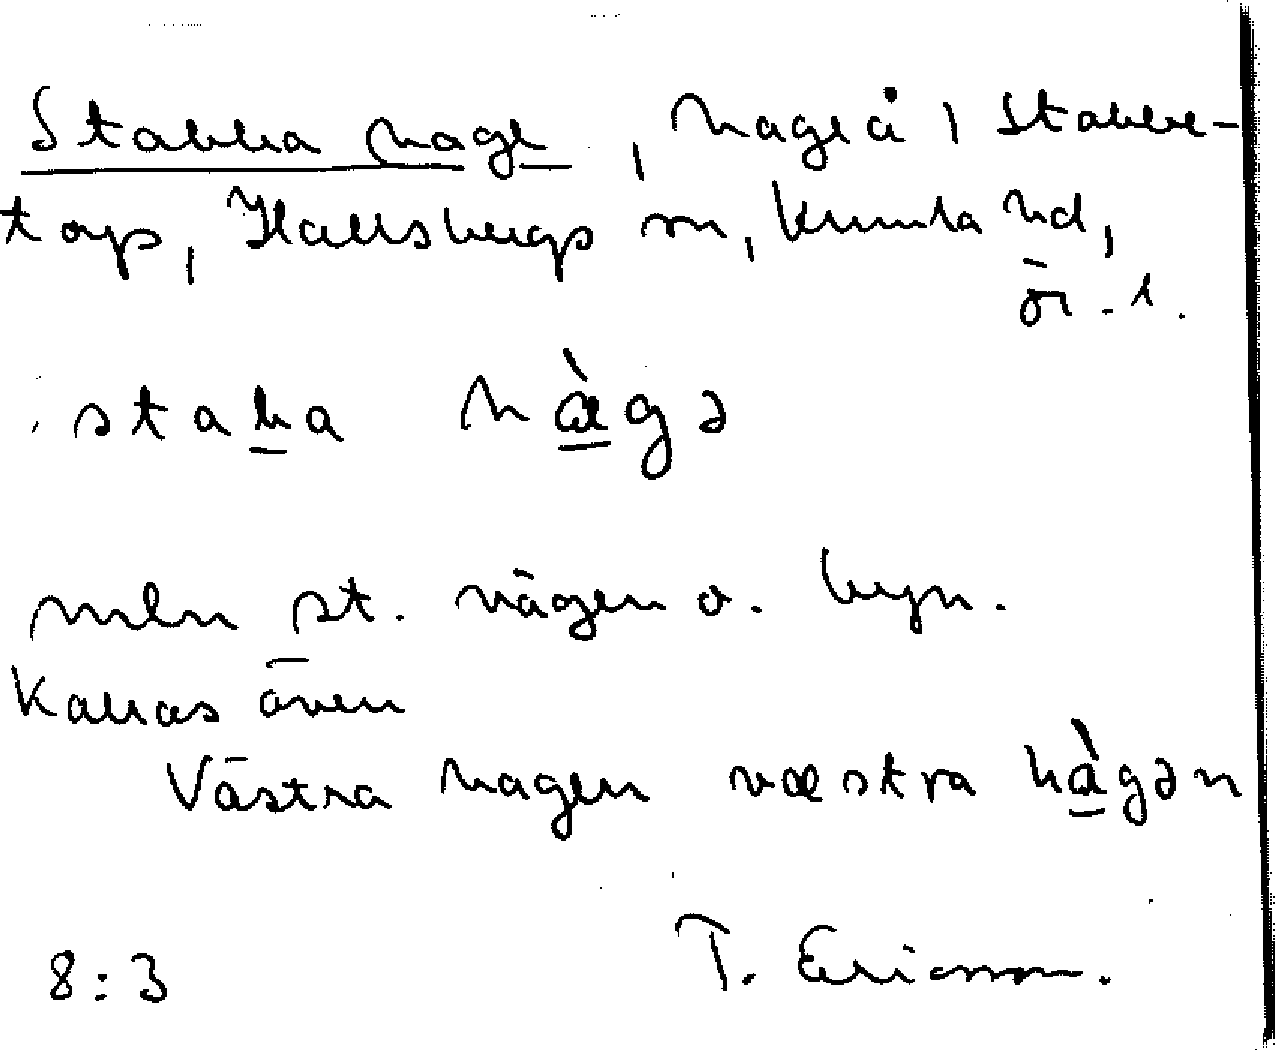 Stabba hage, hage å Stabbe-
torp, Hallsbergs sn, Kumla hd,
ör. l.
staba hàgə
mln st. vägen o. byn.
Kallas även
Västra hagen væstra hàgən
8:3 T. Ericsson.